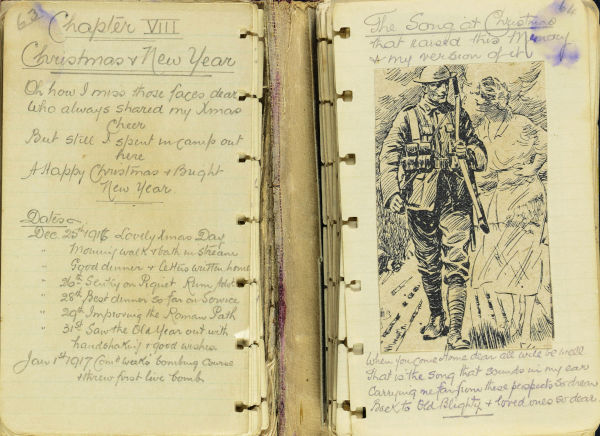 63
Chapter VIII
Christmas & New Year
Oh how I miss those faces dear
Who always shared my Xmas
Cheer
But still I spent in camp out
here
A Happy Christmas & Bright
New Year.
Dates
Dec. 25th 1916 Lovely Xmas Day
" Morning walk & bath in stream
" Good dinner & letters written home
" 26th Sentry on Piquet Rum
" 28th Best dinner so far on Service
" 29th Improving the Roman Path
" 31st Saw the Old Year out with
handshaking & good wishes
Jan 1st 1917 bombing Course
& threw first live bomb.
64
The Song at Christmas
that raised this Memory
& my version of it
When you come home dear all will be well
That is the Song that sounds in my ear
Carrying me far from these so drear
Back to Old Blighty & loved ones so dear.